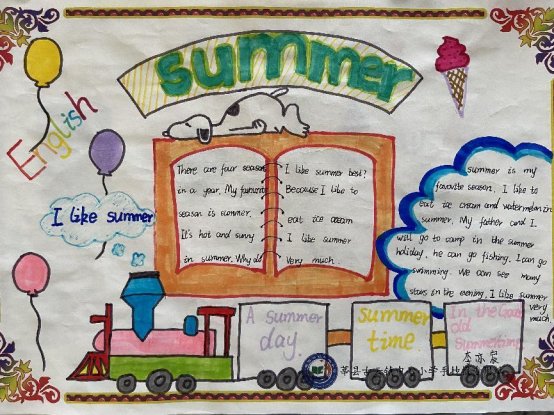 summer
English
I like summer
There are four season
in a year. My favourite
season is summer.
It's hot and sunny
in summer. Why do
I like summer best?
Because I like to
eat ice cream
I like summer
very much.
summer is my
favorite season. I like to
eat ice cream and watermelon in
summer. My father and I
will go to camp in the summer
holiday. he can go fishing. I can go
swimming. We can see many
stars in the evening. I like summer
very
much
A summer
day.
summer
time.
In the Good
old
Summertime